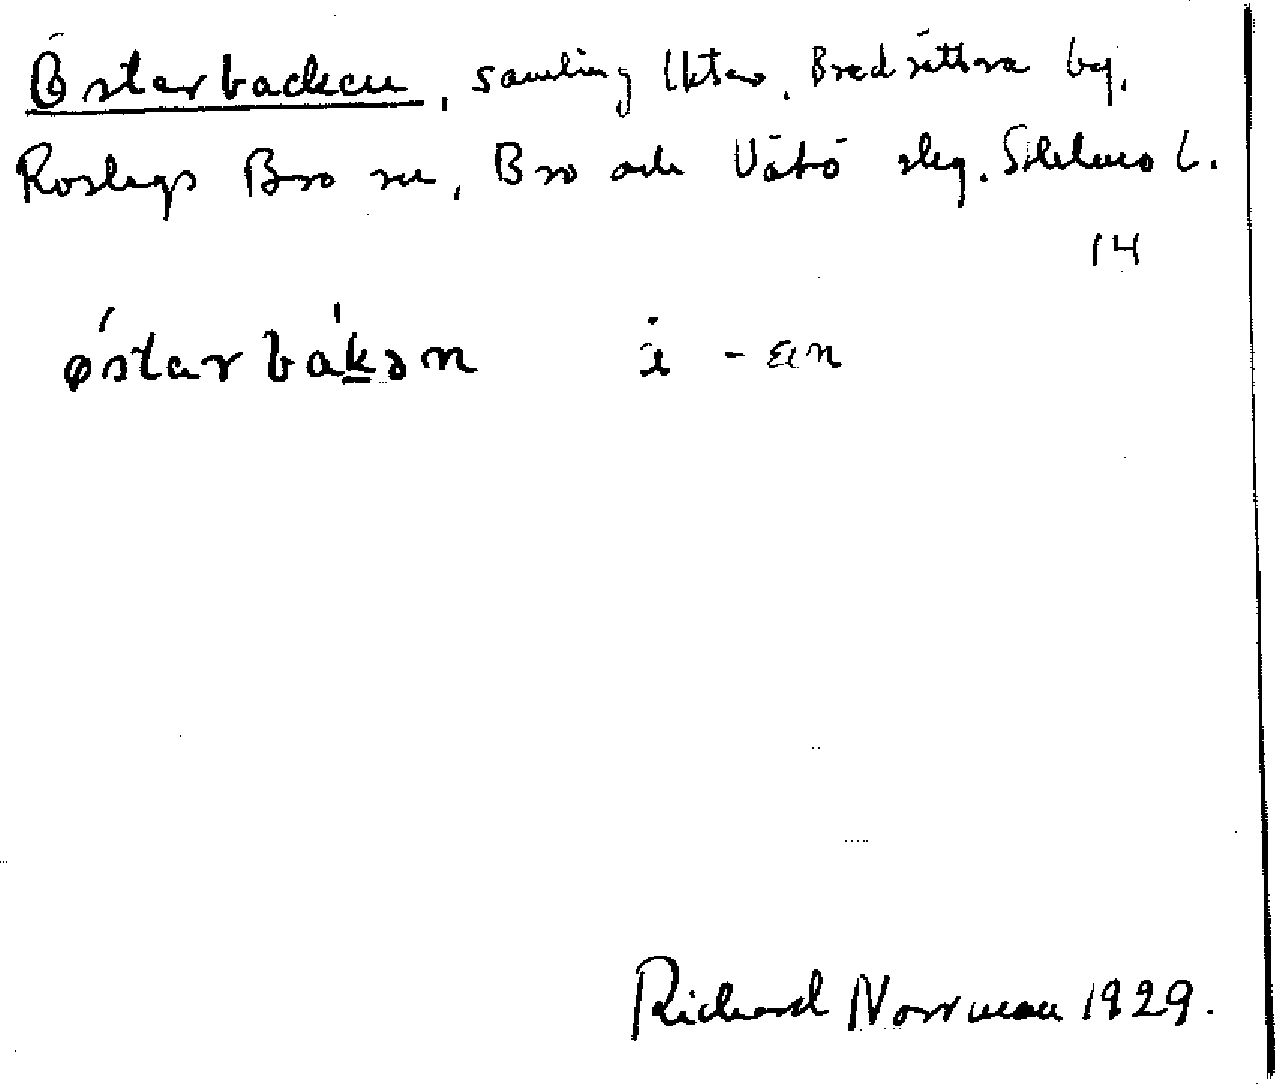 Österbacken, samling lktar, Bredsättra by,
Roslags Bro sn, Bro och Vätö skg. Sthlms l.
14
østarbakən i -än
Richard Norrman 1929.